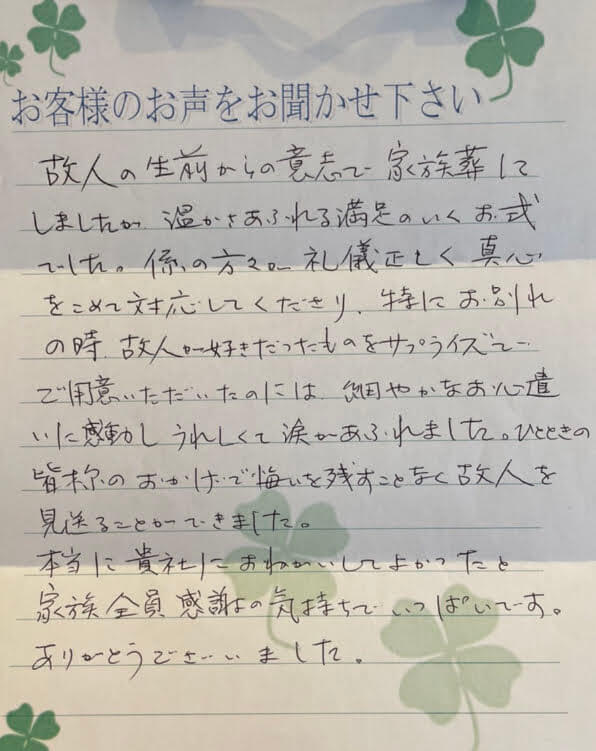 お客様のお声をお聞かせ下さい
故人の生前からの意志で家族葬にて
しましたが、温かさあふれる満足のいくお式
でした。係りの方々が礼儀正しく真心
をこめて対応してくださり、特にお別れ
の時、故人が好きだったものをサプライズで
ご用意いただいたのには、細やかなお心遣
いに感動しうれしくて涙があふれました。ひとときの
皆様のおかげで悔いを残すことなく故人を
見送ることができました。
本当に貴社におねがいしてよかったと
家族全員感謝の気持ちでいっぱいです。
ありがとうございました。